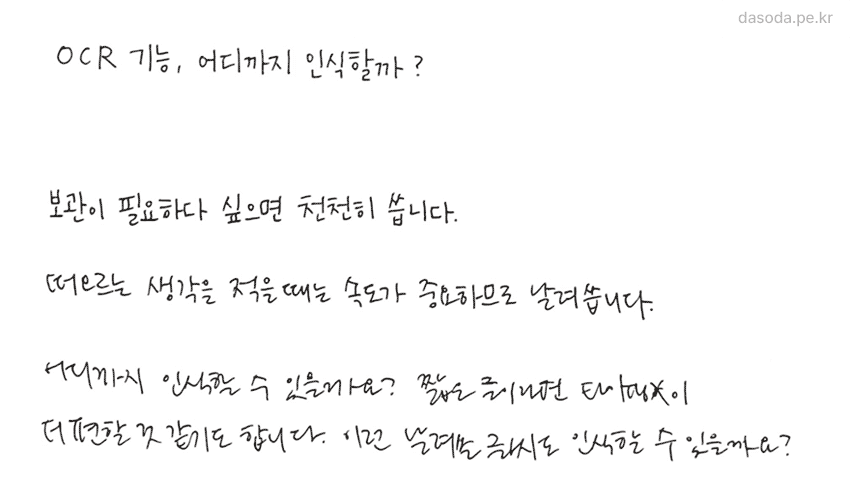 dasoda.pe.kr
OCR 기능, 어디까지 인식할까?
보관이 필요하다 싶으면 천천히 씁니다.
떠오르는 생각을 적을때는 속도가 중요하므로 날려씁니다.
어디까지 인식할 수 있을까요? 짧은 글이라면 타이핑이
더 편할 것 같기도 합니다. 이런 날려쓴 글씨도 인식할 수 있을까요?